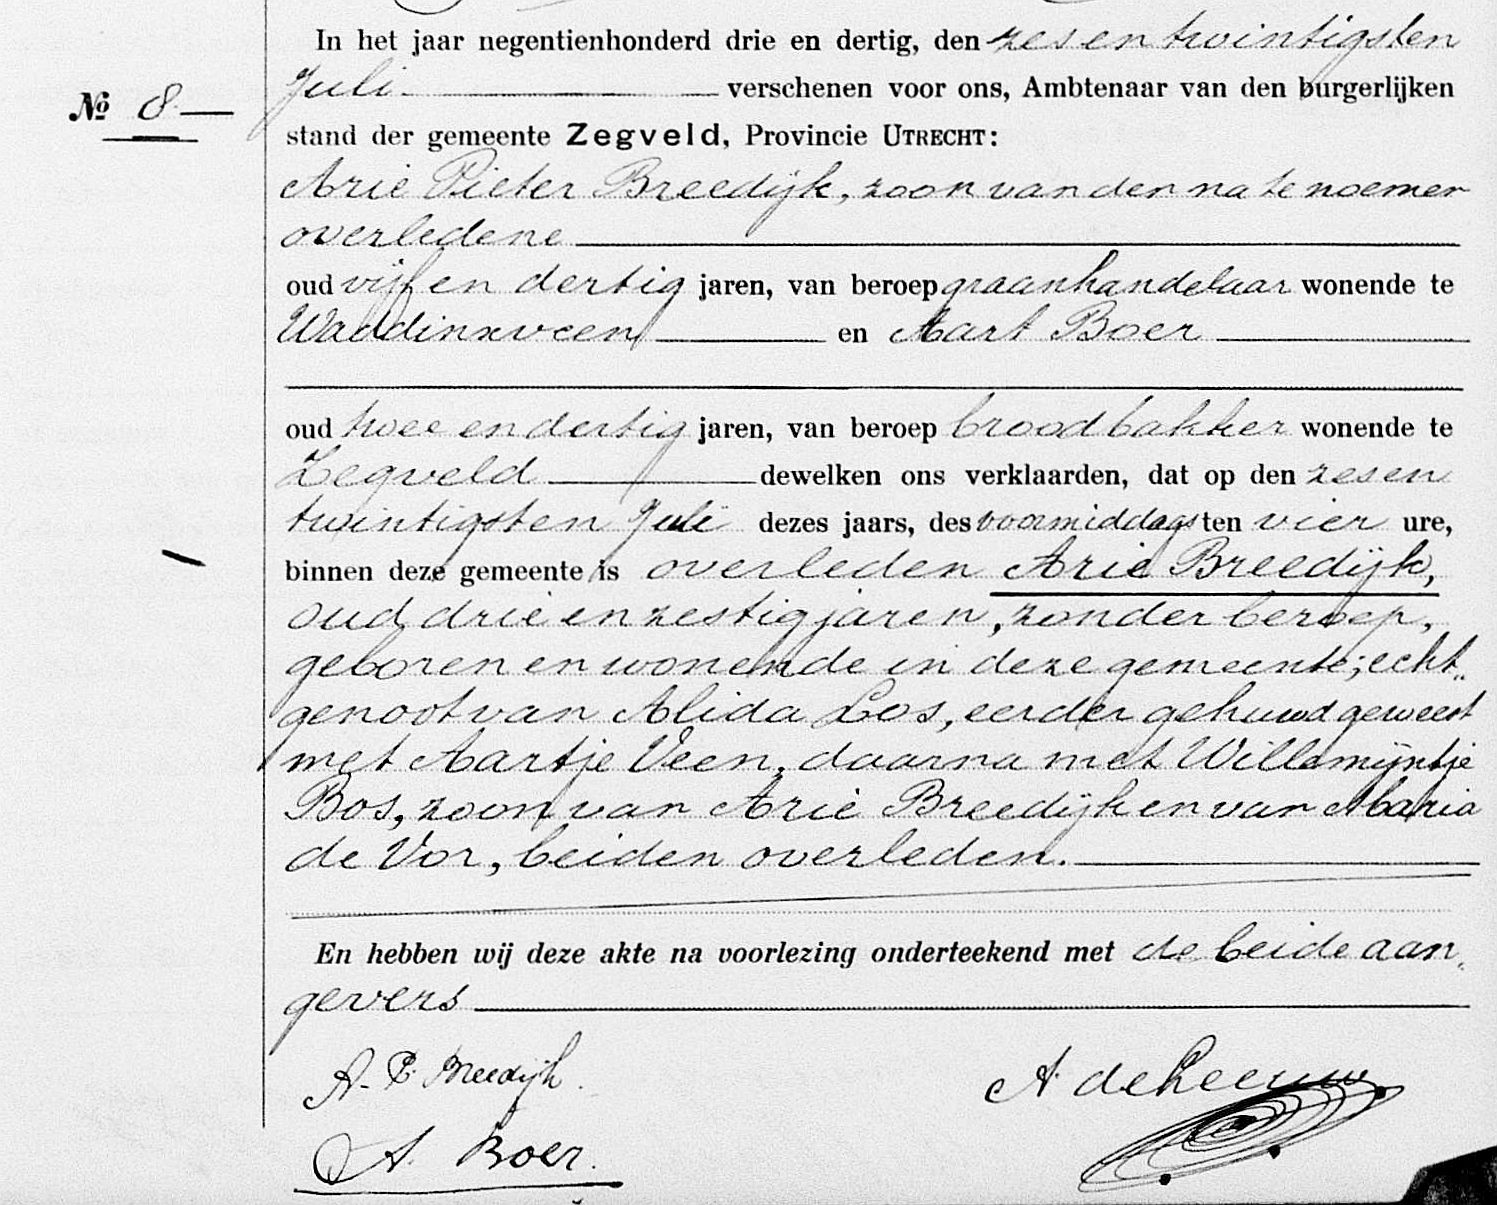 In het jaar negentienhonderd drie en dertig, den zes en twintigsten
Juli verschenen voor ons, Ambtenaar van den burgerlijken
№ 8
stand der gemeente Zegveld, Provincie UTRECHT:
Arie Pieter Breedijk, zoon van den na te noemen
overledene
oud vijf en dertig jaren, van beroep graanhandelaar wonende te
Waddinxveen en Aart Boer
oud twee en dertig jaren, van beroep broodbakker wonende te
Zegveld dewelken ons verklaarden, dat op den zes en
twintigsten Juli dezes jaars, des voormiddags ten vier ure,
binnen deze gemeente is overleden Arie Breedijk,
oud drie en zestig jaren, zonder beroep,
geboren en wonende in deze gemeente; echt„
genoot van Alida Los, eerder gehuwd geweest
met Aartje Veen, daarna met Willemijntje
Bos, zoon van Arie Breedijk en van Maria
de Vor, beiden overleden.
En hebben wij deze akte na voorlezing onderteekend met de beide aan„
gevers
A. P. Breedijk. A. de Leeuw.
A. Boer.